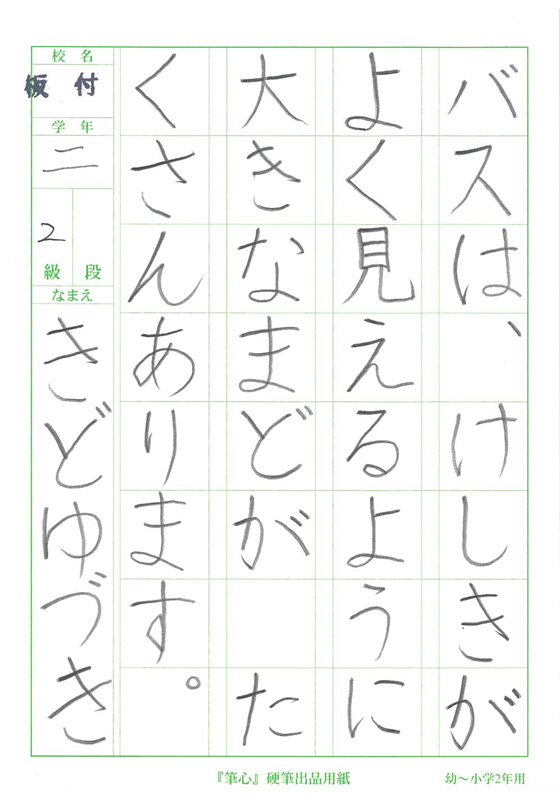 バスは、けしきが
よく見えるように
大きなまどが　た
くさんあります。
校名
板付
学年
二
2
級 段
なまえ
きどゆづき
『筆心』硬筆出品用紙
幼～小学2年用